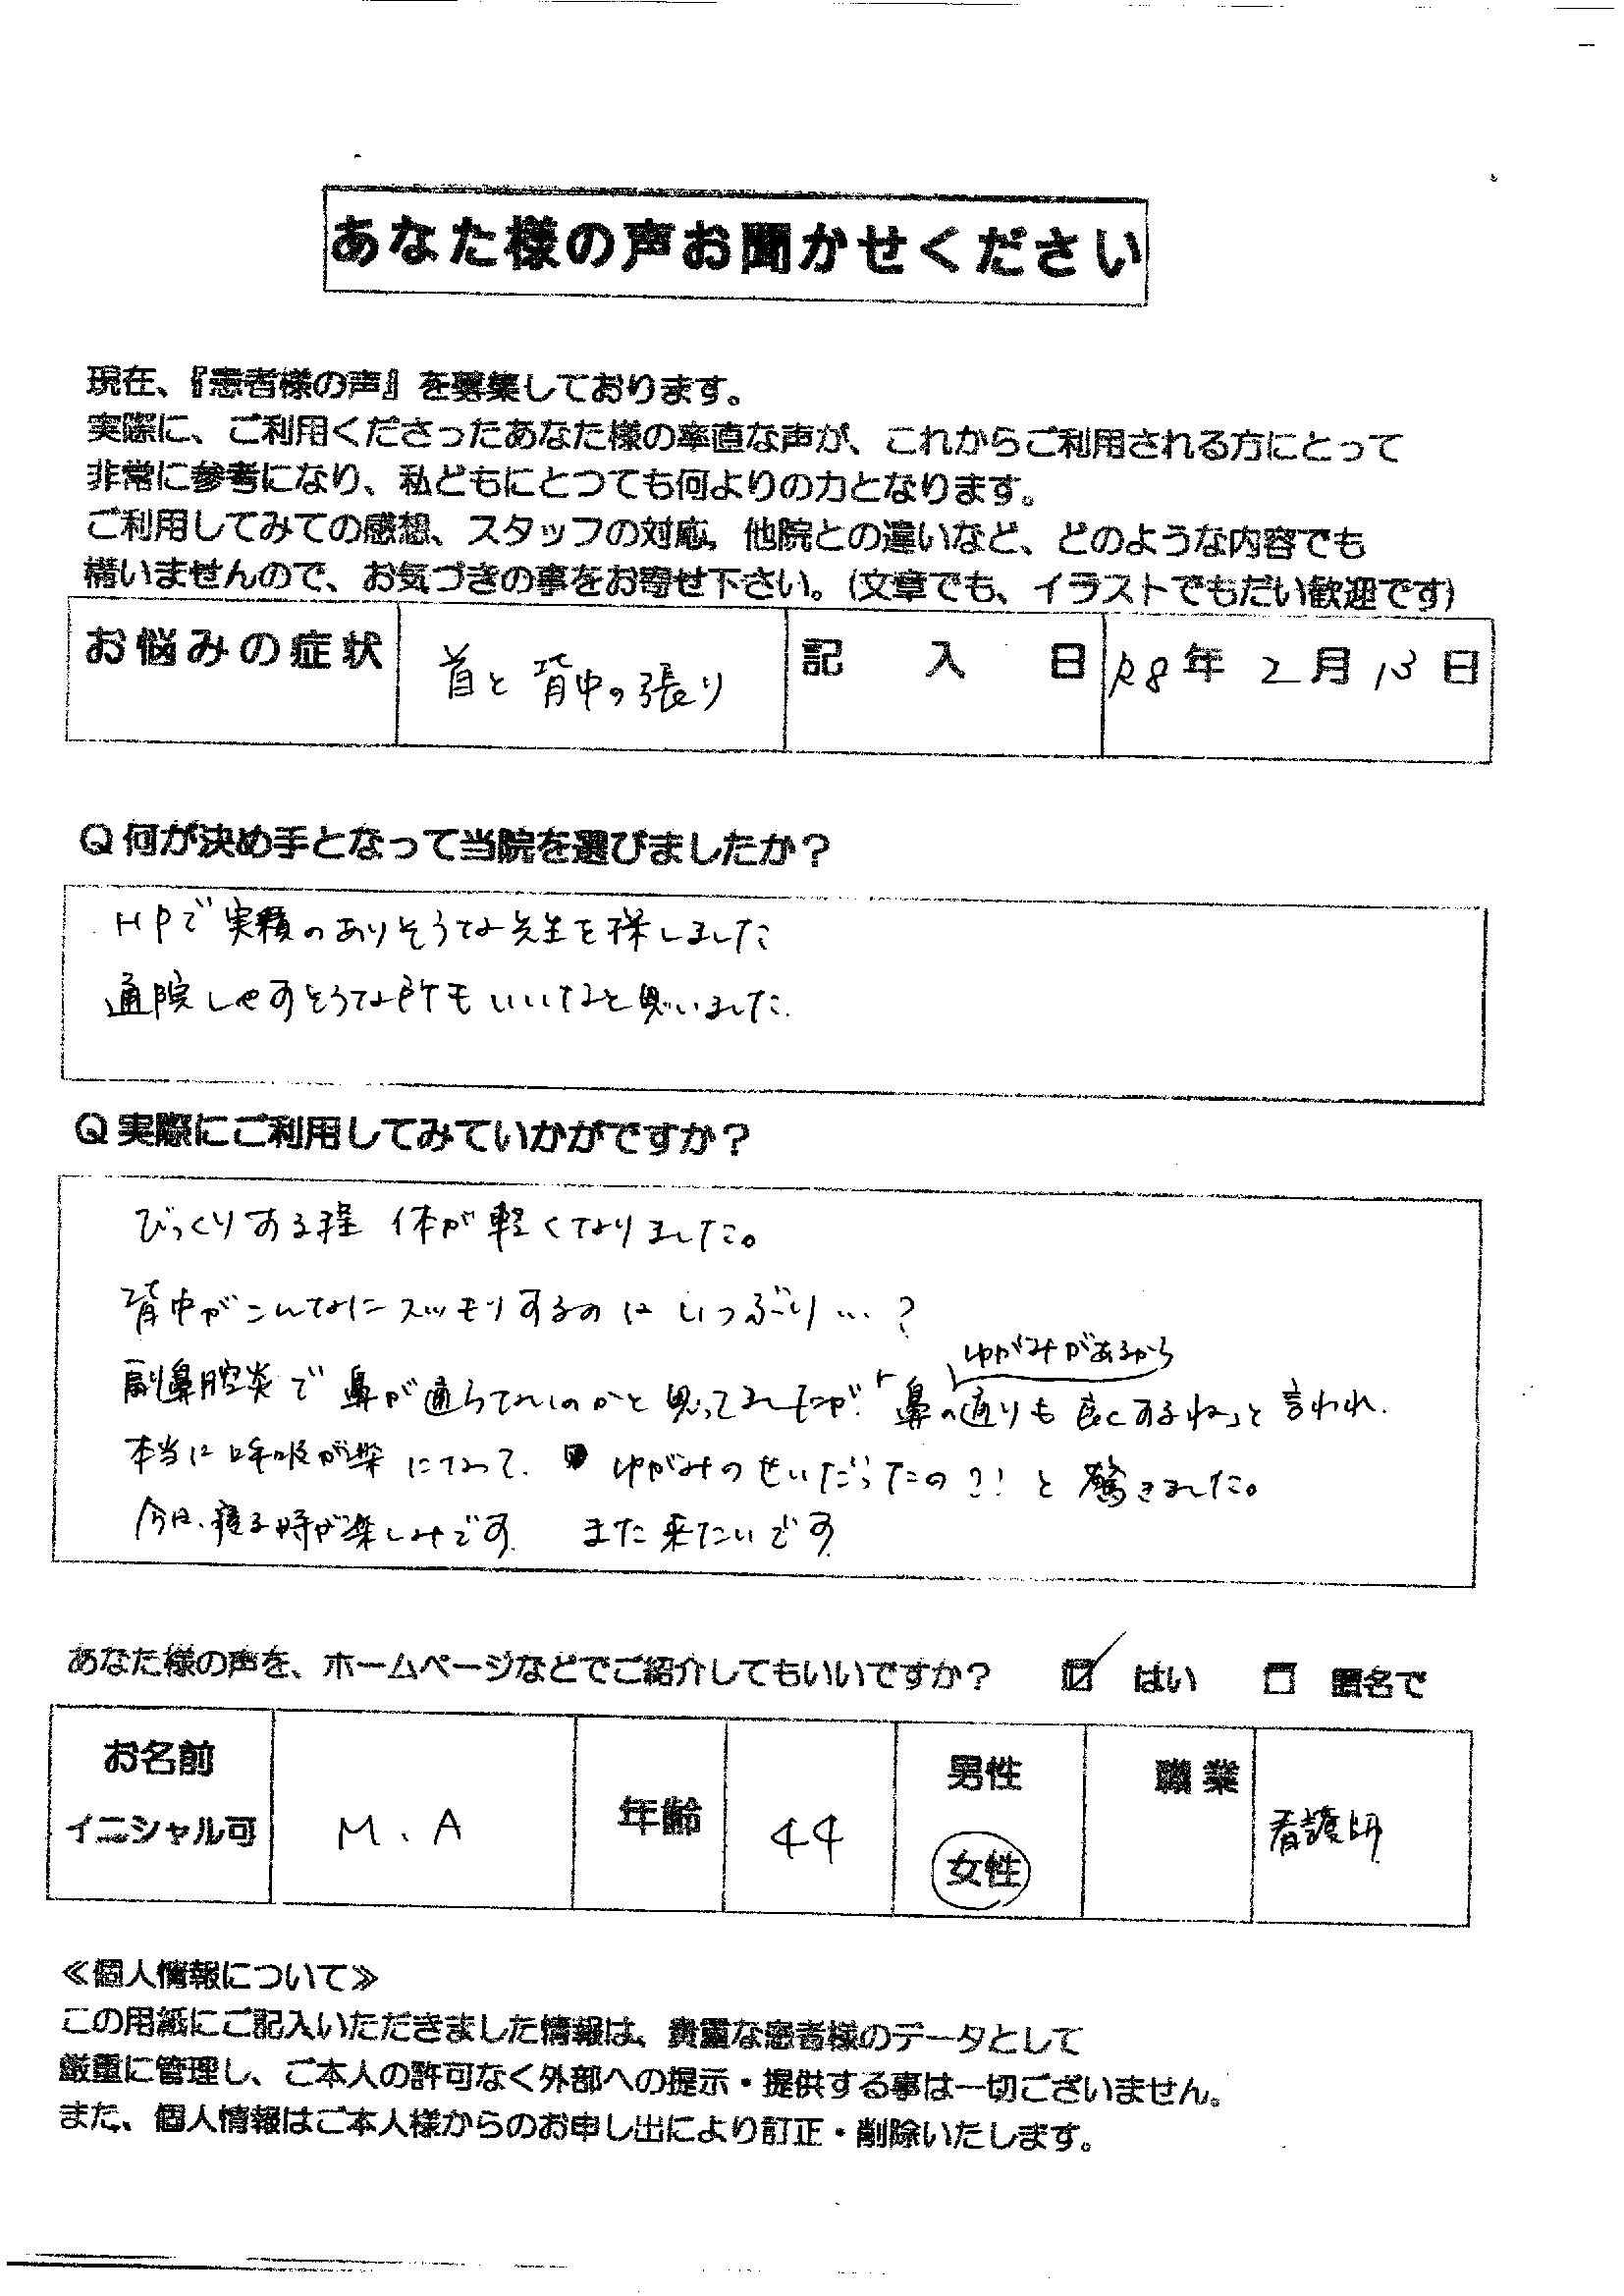 あなた様の声お聞かせください
現在、『患者様の声』を募集しております。
実際に、ご利用くださったあなた様の率直な声が、これからご利用される方にとって
非常に参考になり、私どもにとつても何よりの力となります。
ご利用してみての感想、スタッフの対応。他院との違いなど、どのような内容でも
構いませんので、お気づきの事をお寄せ下さい。(文章でも、イラストでもだい歓迎です)
お悩みの症状 首と背中の張り 記入日 R8年2月13日
Q何が決め手となって当院を選びましたか？
HPで実績のありそうな先生を探しました
通院しやすそうな所もいいなと思いました.
Q実際にご利用してみていかがですか？
びっくりする程 体が軽くなりました。
背中がこんなにスッキリするのはいつぶり…？
ゆがみがあるから
副鼻腔炎で鼻が通らないのかと思ってましたが.「鼻の通りも良くするね」と言われ.
本当に呼吸が楽になって. ゆがみのせいだったの?!と驚きました。
今日、寝る時が楽しみです. また来たいです.
あなた様の声を、ホームページなどでご紹介してもいいですか？ ☑ はい □ 匿名で
お名前 イニシャル可 M.A 年齢 44 男性 女性 職業 看護師
≪個人情報について≫
この用紙にご記入いただきました情報は、貴重な患者様のデータとして
厳重に管理し、ご本人の許可なく外部への提示・提供する事は一切ございません。
また、個人情報はご本人様からのお申し出により訂正・削除いたします。